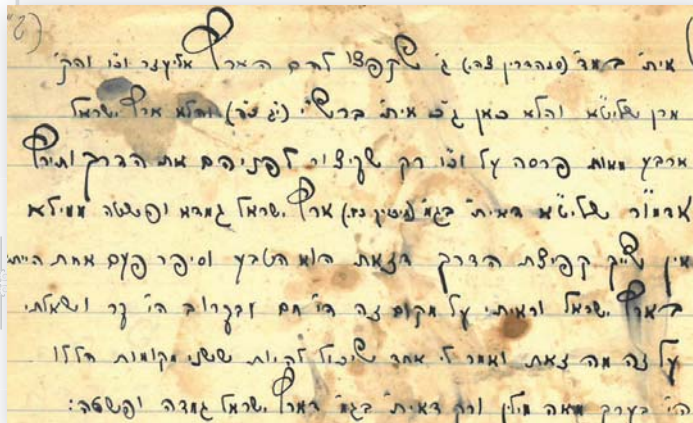 (ס
אית' בגמ' (סנהדרין צה.) ג' שקפצו להם הארץ אליעזר וכו' והק'
מרן שליט"א והלא כאן ג"כ אית' ברש"י (יג כה) והלא ארץ ישראל
ארבע מאות פרסה על וכו' רק שקיצור לפניהם את הדרך ותירץ
אדמו"ר שליט"א דאית' בגמ' ארץ ישראל גמדא ופשטה ממילא
אין שייך קפיצת הדרך דזאת הוא הטבע וסיפר פעם אחת הייתי
בארץ ישראל וראיתי על מקום זה הי' חם ובקרוב הי' קר ושאלתי
על זה מה זאת ואמר לי אחד שיכול להיות ששני מקומות הללו
הי' בערך מאה מילין ורק דאית' בגמ' דארץ ישראל גמדה ופשטה: